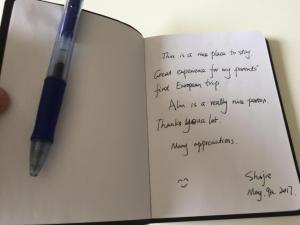 This is a nice place to stay.
Great experience for my parents'
first European trip.
Alan is a really nice person.
Thanks you a lot.
Many appreciations.
Shujie
May. 9th. 2017.